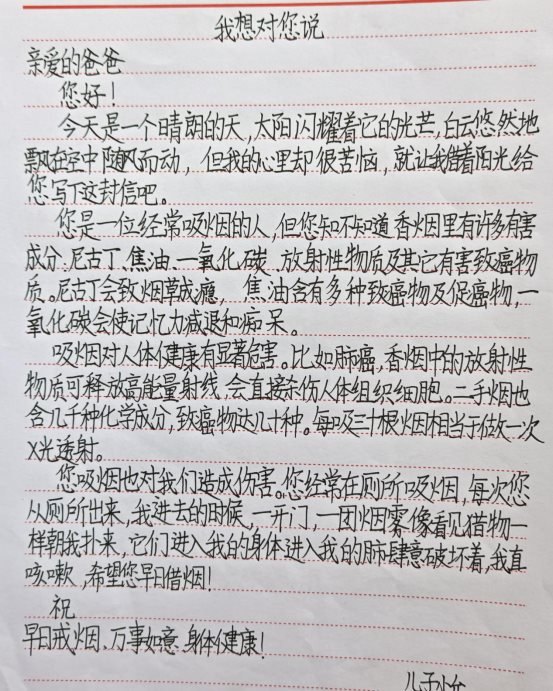 我想对您说
亲爱的爸爸
您好！
今天是一个晴朗的天，太阳闪耀着它的光芒，白云悠然地
飘在空中随风而动，但我的心里却很苦恼，就让我借着阳光给
您写下这封信吧。
您是一位经常吸烟的人，但您知不知道香烟里有许多有害
成分：尼古丁、焦油、一氧化碳、放射性物质及其它有害致癌物
质。尼古丁会致烟草成瘾，焦油含有多种致癌物及促癌物，一
氧化碳会使记忆力减退和痴呆。
吸烟对人体健康有显著危害。比如肺癌，香烟中的放射性
物质可释放高能量射线，会直接杀伤人体组织细胞。二手烟也
含几千种化学成分，致癌物达几十种。每吸三十根烟相当于做一次
X光透射。
您吸烟也对我们造成伤害。您经常在厕所吸烟，每次您
从厕所出来，我进去的时候，一开门，一团烟雾像看见猎物一
样朝我扑来，它们进入我的身体进入我的肺肆意破坏着，我直
咳嗽，希望您早日借烟！
祝
早日戒烟、万事如意、身体健康！
儿子